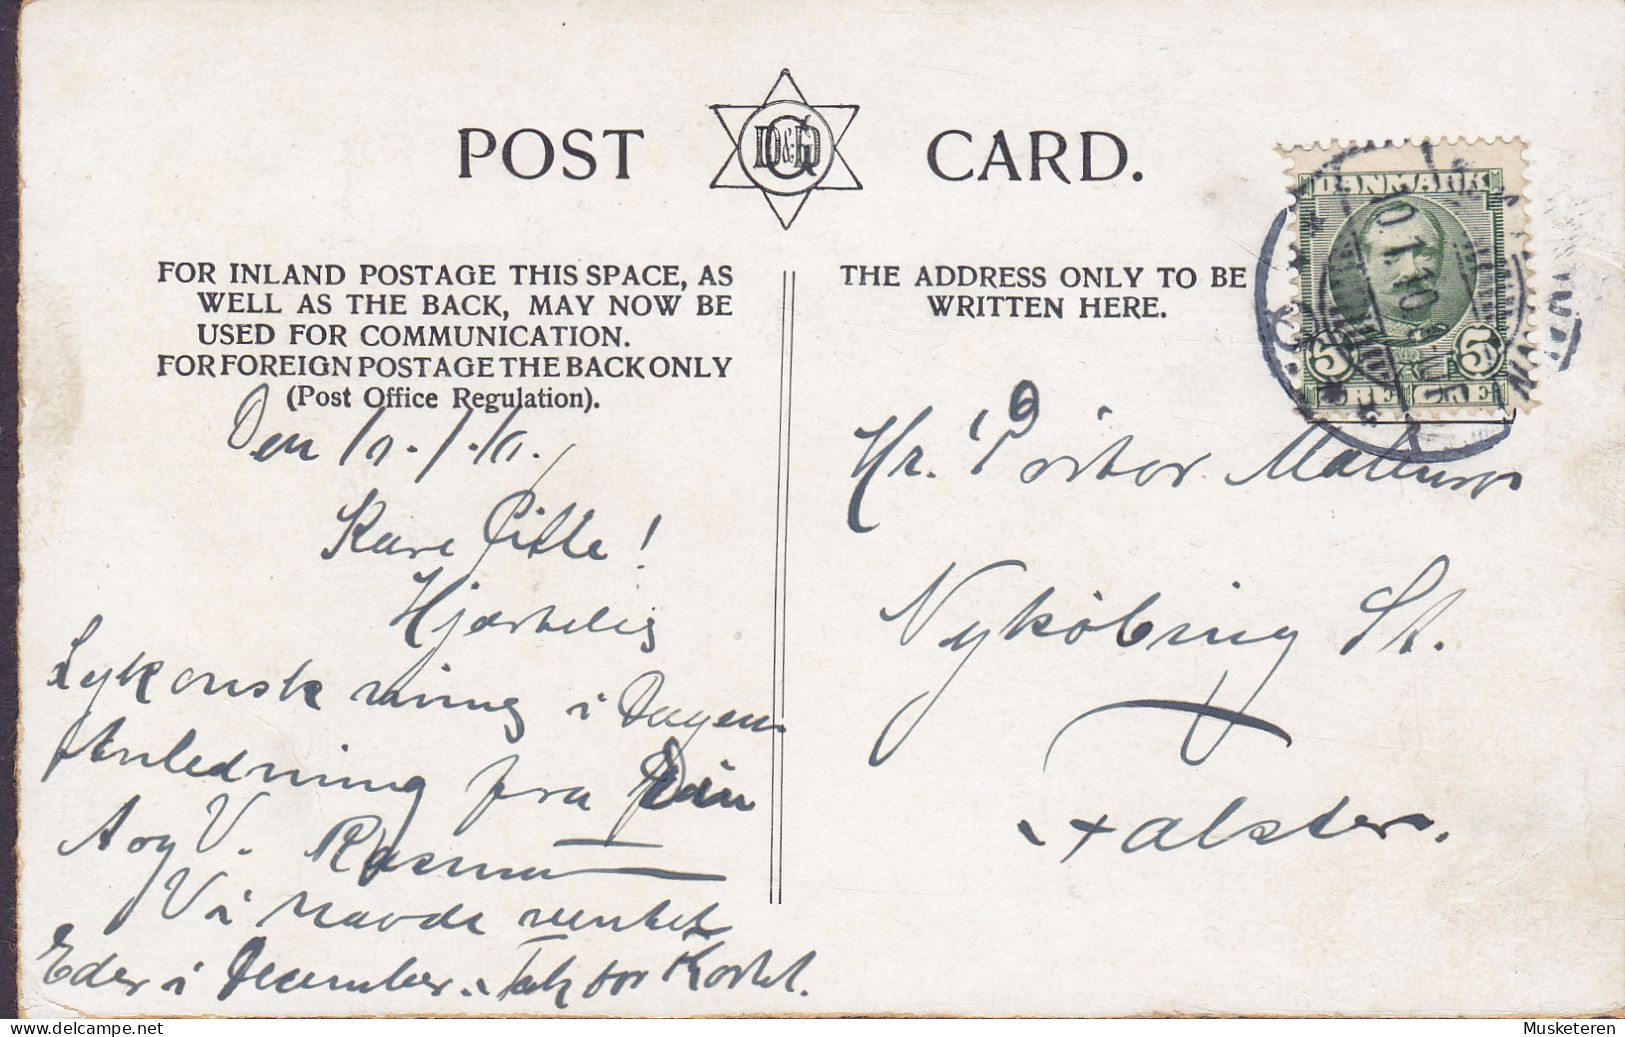 POST CARD.
D&G
FOR INLAND POSTAGE THIS SPACE, AS
WELL AS THE BACK, MAY NOW BE
USED FOR COMMUNICATION.
FOR FOREIGN POSTAGE THE BACK ONLY
(Post Office Regulation).
THE ADDRESS ONLY TO BE
WRITTEN HERE.
DANMARK
5 5
ØRE ØRE
10.1.10
Den
Kære Gitte!
Hjærtelig
Lykønskning i Dagens
Anledning fra Din
A og V. Rasmu
Vi havde ventet
Eder i December. Tak for Kortet.
Hr. Portør
Nykøbing St.
Falster.
Musketeren